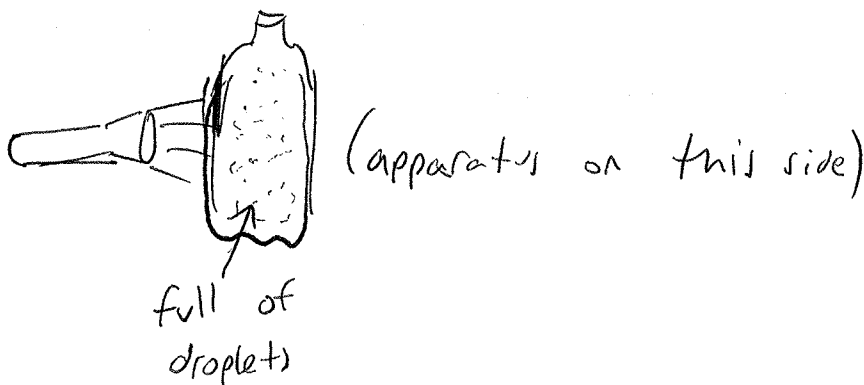 (apparatus on this side)
full of
droplets